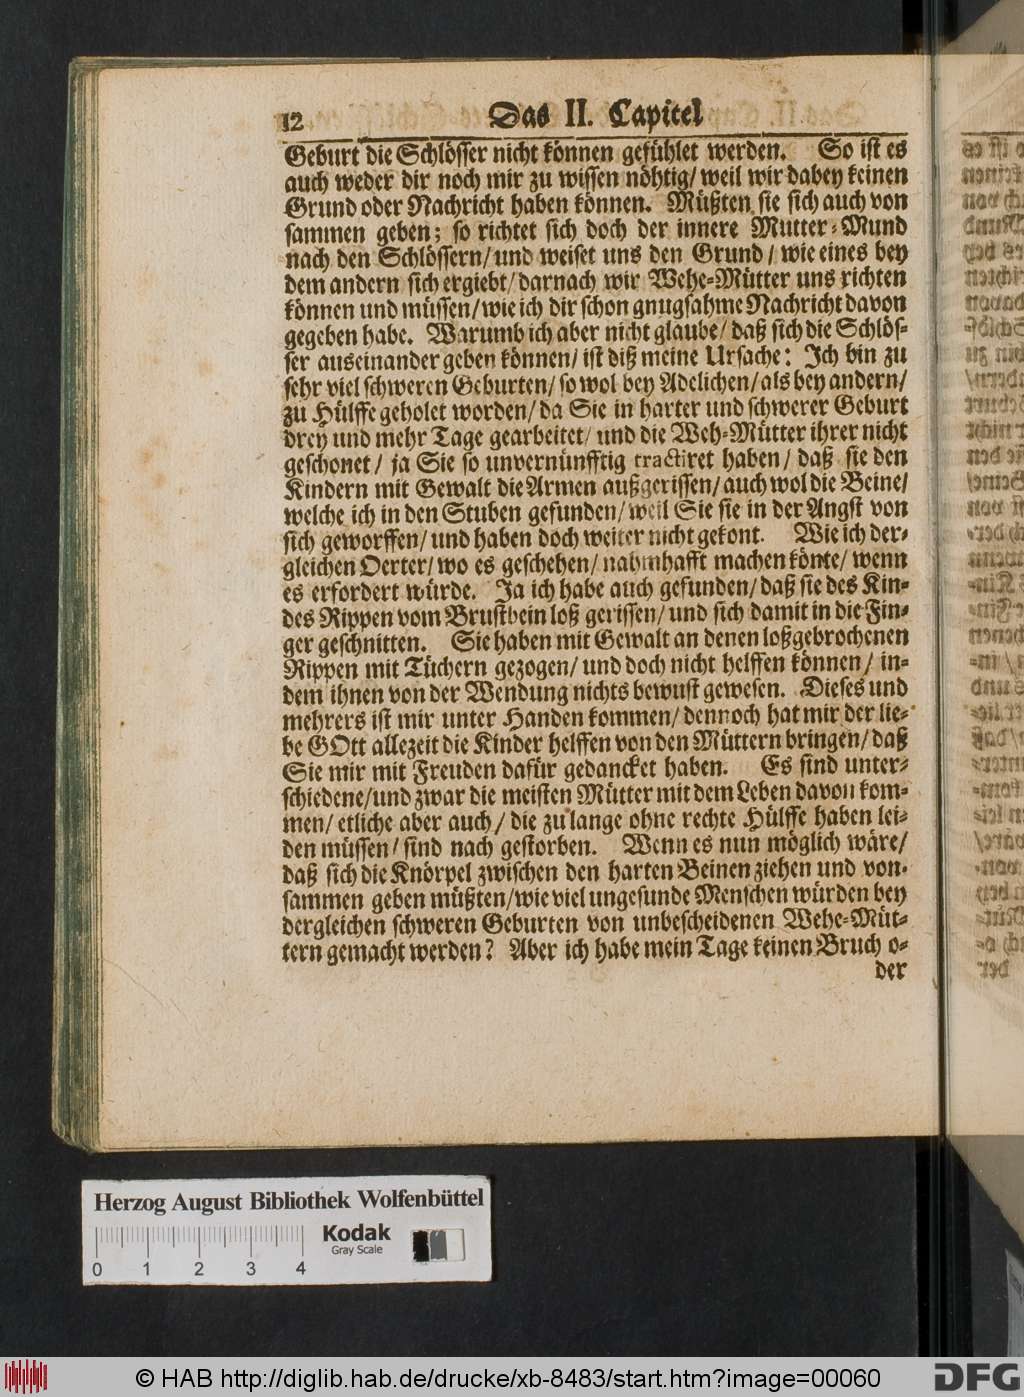 12 Das II. Capitel
Geburt die Schlösser nicht können gefühlet werden. So ist es
auch weder dir noch mir zu wissen nöhtig/ weil wir dabey keinen
Grund oder Nachricht haben können. Müßten sie sich auch von
sammen geben; so richtet sich doch der innere Mutter-Mund
nach den Schlössern/ und weiset uns den Grund/ wie eines bey
dem andern sich ergiebt/ darnach wir Wehe-Mütter uns richten
können und müssen/ wie ich dir schon gnugsahme Nachricht davon
gegeben habe. Warumb ich aber nicht glaube/ daß sich die Schlös-
ser auseinander geben können/ ist diß meine Ursache: Ich bin zu
sehr viel schweren Geburten/ so wol bey Adelichen/ als bey andern/
zu Hülffe geholet worden/ da Sie in harter und schwerer Geburt
drey und mehr Tage gearbeitet/ und die Weh-Mütter ihrer nicht
geschonet/ ja Sie so unvernünfftig tractiret haben/ daß sie den
Kindern mit Gewalt die Armen außgerissen/ auch wol die Beine/
welche ich in den Stuben gefunden/ weil Sie sie in der Angst von
sich geworffen/ und haben doch weiter nicht gekont. Wie ich der-
gleichen Oerter/ wo es geschehen/ nahmhafft machen könte/ wenn
es erfordert würde. Ja ich habe auch gefunden/ daß sie des Kin-
des Rippen vom Brustbein loß gerissen/ und sich damit in die Fin-
ger geschnitten. Sie haben mit Gewalt an denen loßgebrochenen
Rippen mit Tüchern gezogen/ und doch nicht helffen können/ in-
dem ihnen von der Wendung nichts bewust gewesen. Dieses und
mehrers ist mir unter Handen kommen/ dennoch hat mir der lie-
be GOtt allezeit die Kinder helffen von den Müttern bringen/ daß
Sie mir mit Freuden dafür gedancket haben. Es sind unter-
schiedene/ und zwar die meisten Mütter mit dem Leben davon kom-
men/ etliche aber auch/ die zu lange ohne rechte Hülffe haben lei-
den müssen/ sind nach gestorben. Wenn es nun möglich wäre/
daß sich die Knörpel zwischen den harten Beinen ziehen und von-
sammen geben müßten/ wie viel ungesunde Menschen würden bey
dergleichen schweren Geburten von unbescheidenen Wehe-Müt-
tern gemacht werden? Aber ich habe mein Tage keinen Bruch o-
der
Herzog August Bibliothek Wolfenbüttel
Kodak
Gray Scale
0 1 2 3 4
© HAB http://diglib.hab.de/drucke/xb-8483/start.htm?image=00060
DFG